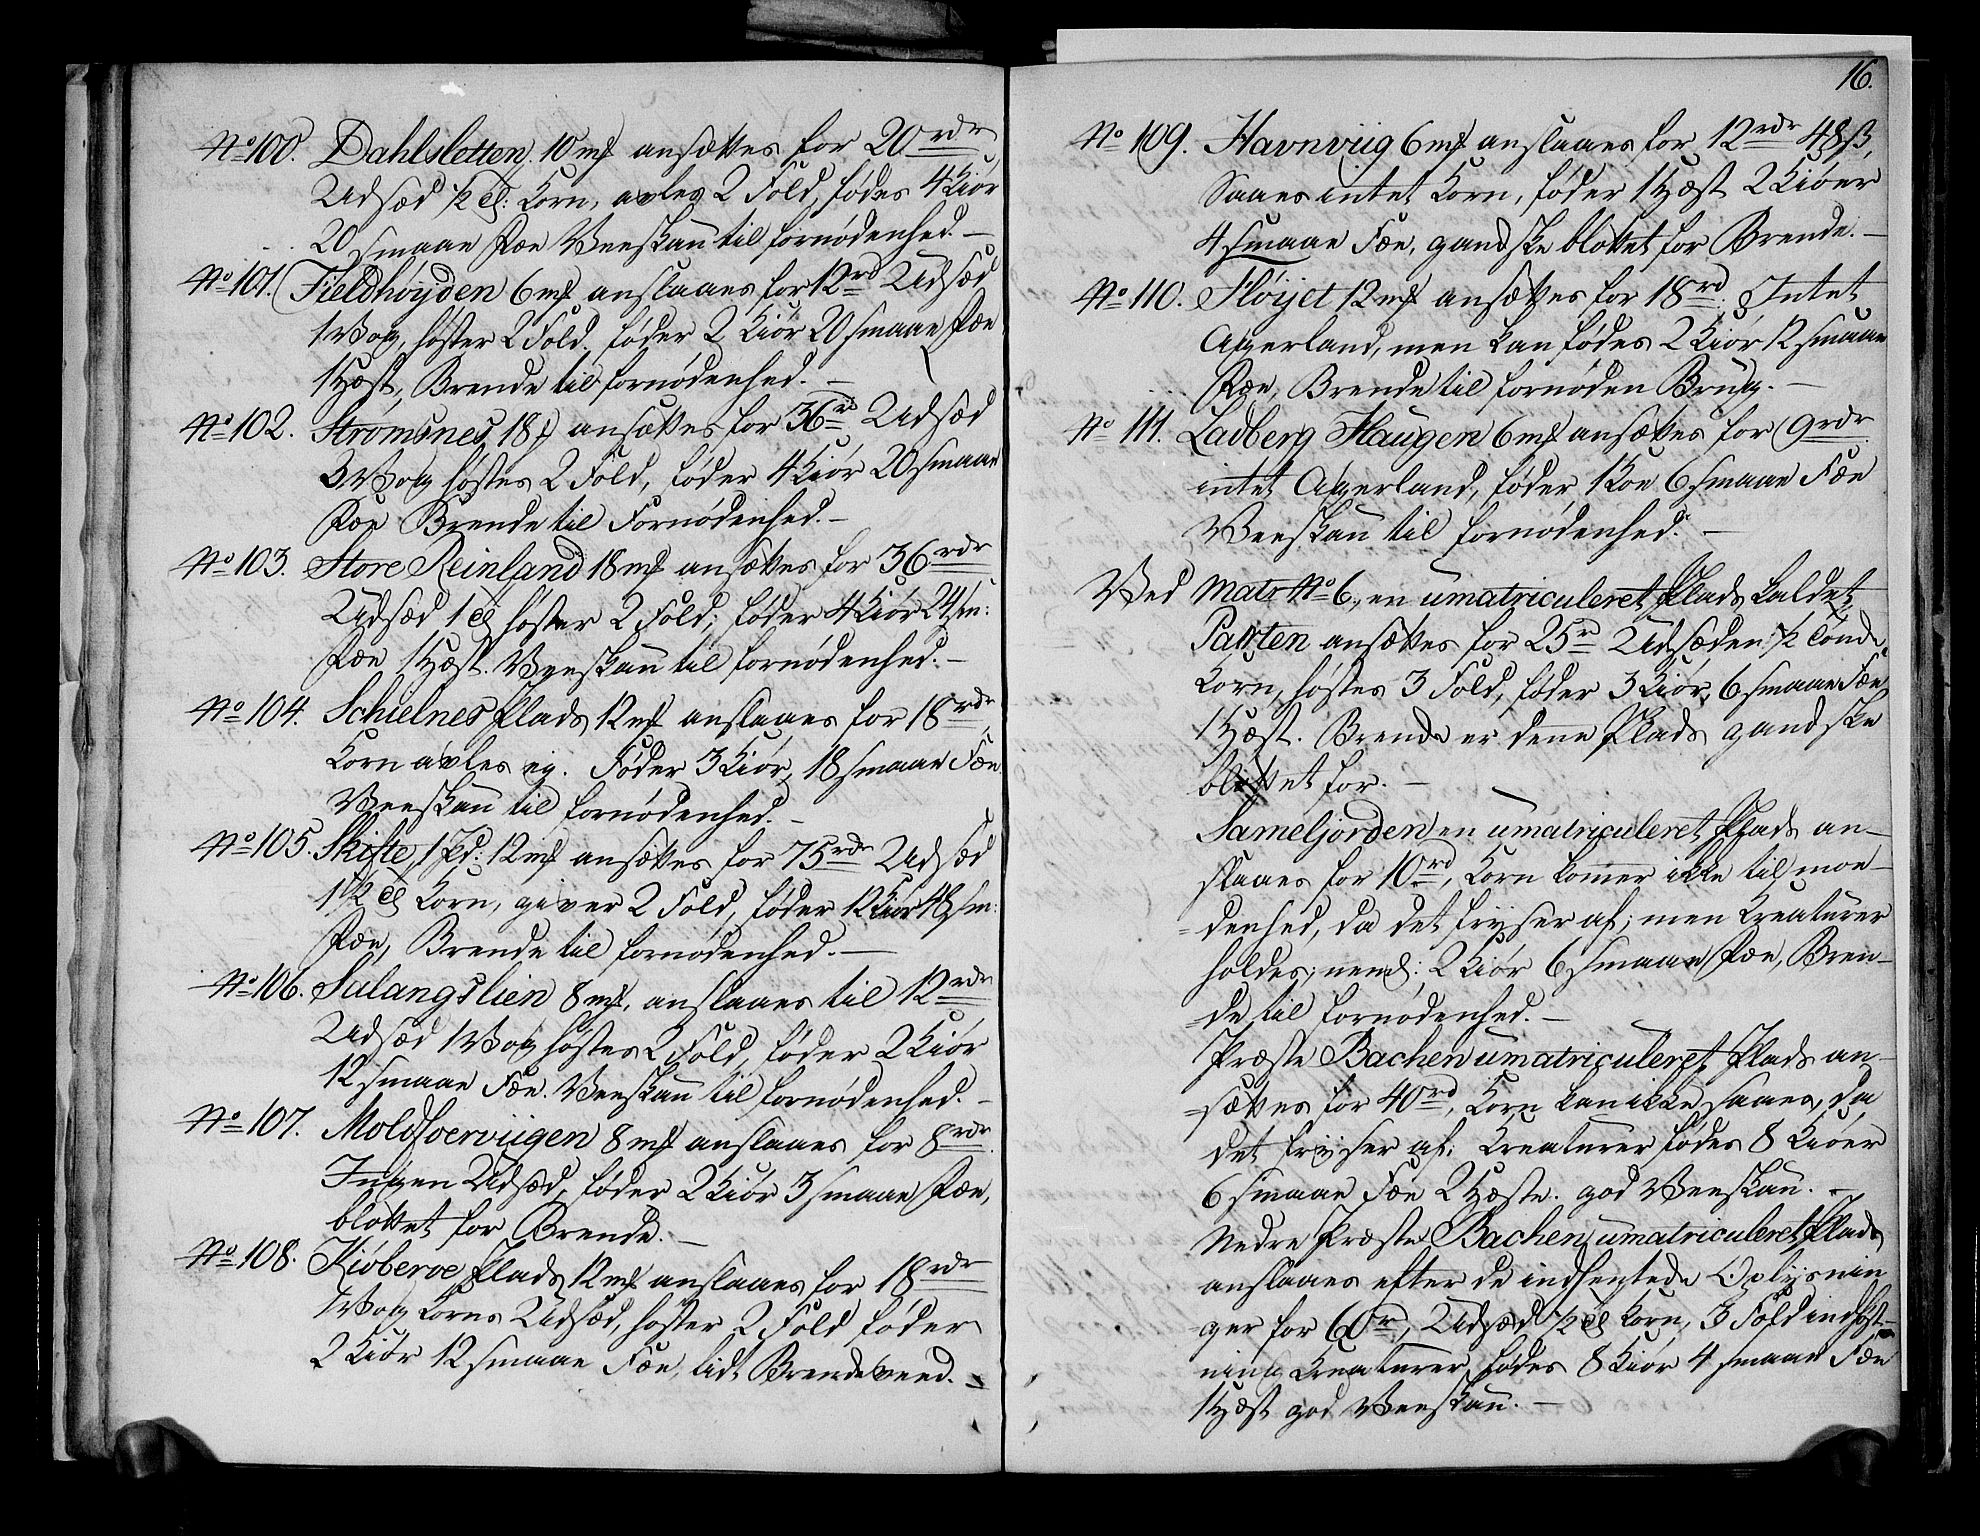 No 100. Dahlsletten, 10 mk ansættes for 20 rdr
Udsæd ½ Td: Korn, avles 2 Fold, fødes 4 Kiør
20 smaae Fæe Veeskau til fornødenhed. —
No 101. Fieldhøyden 6 mk anslaaes for 12 rd Udsæd
1 Vog, høster 2 Fold. føder 2 Kiør 20 smaae Fæe
1 Hæst, Brende til fornødenhed. —
No 102. Strømsnes, 18 mk ansættes for 36 rd Udsæd
3 Vog høstes 2 Fold, føder 4 Kiør 20 smaae
Fæe Brende til Fornødenhed. —
No 103. Store Reinland 18 mk ansættes for 36 rdr
Udsæd 1 Td høster 2 Fold, føder 4 Kiør 24 sm:
Fæe 1 Hæst. Veeskau til fornødenhed. —
No 104. Schielnes Plads 12 mk anslaaes for 18 rdr
Korn avles ej. Føder 3 Kiør, 18 smaae Fæe
Veeskau til fornødenhed. —
No 105. Skifte, 1 Pd: 12 mk ansættes for 75 rdr Udsæd
1½ Td Korn, giver 2 Fold, føder 12 Kiør 48 sm:
Fæe, Brende til fornødenhed. —
No 106. Salangslien 8 mk, anslaaes til 12 rdr
Udsæd 1 Vog høstes 2 Fold, føder 2 Kiør
12 smaae Fæe. Veeskau til fornødenhed. —
No 107. Moldfoerviigen 8 mk anslaaes for 8 rdr
Ingen Udsæd, føder 2 Kiør 3 smaae Fæe,
blottet for Brende. —
No 108. Kioberoe Plads 12 mk anslaaes for 18 rdr
1 Vog Korns Udsæd, høster 2 Fold føder
2 Kiør 12 smaae Fæe, lidt Brendeveed. —
16.
No 109. Havnviig 6 mk anslaaes for 12 rdr 48 ß,
Saaes intet Korn, føder 1 Hæst 2 Kiøer
4 smaae Fæe, gandske blottet for Brende. —
No 110. Fløyet 12 mk ansættes for 18 rd. Intet
Agerland, men kan fødes 2 Kiør 12 smaae
Fæe, Brende til fornøden Brug. —
No 111. Ladberg Haugen 6 mk ansættes for 9 rdr
intet Agerland, føder 1 Koe 6 smaae Fæe
Veeskau til fornødenhed. —
Ved Matr No 6, en umatriculeret Plads kaldet
Parten ansættes for 25 r Udsæden ½ Tønde
Korn, høstes 3 Fold, føder 3 Kiør, 6 smaae Fæe
1 Hæst. Brende er denne Plads gandske
blottet for. —
Sameljorden en umatriculeret Plads an-
slaaes for 10 rd, Korn kommer ikke til moe-
=denhed, da det fryser af; men Kreaturer
holdes, neml: 2 Kiør 6 smaae Fæe, Bren-
=de til fornødenhed. —
Præste Bachen umatriculeret Plads an-
=sættes for 40 rd, Korn kan ikke saaes, da
det fryser af; Kreaturer fødes 8 Kiøer
6 smaae Fæe 2 Hæste. god Veeskau. —
Nedre Præste Bachen umatriculeret Plads
anslaaes efter de indhentede Oplysnin
ger for 60 r, Udsæd ½ Td Korn, 3 Fold indhøst-
ning Kreaturer, fødes 8 Kiør 4 smaae Fæe
1 Hæst god Veeskau. —